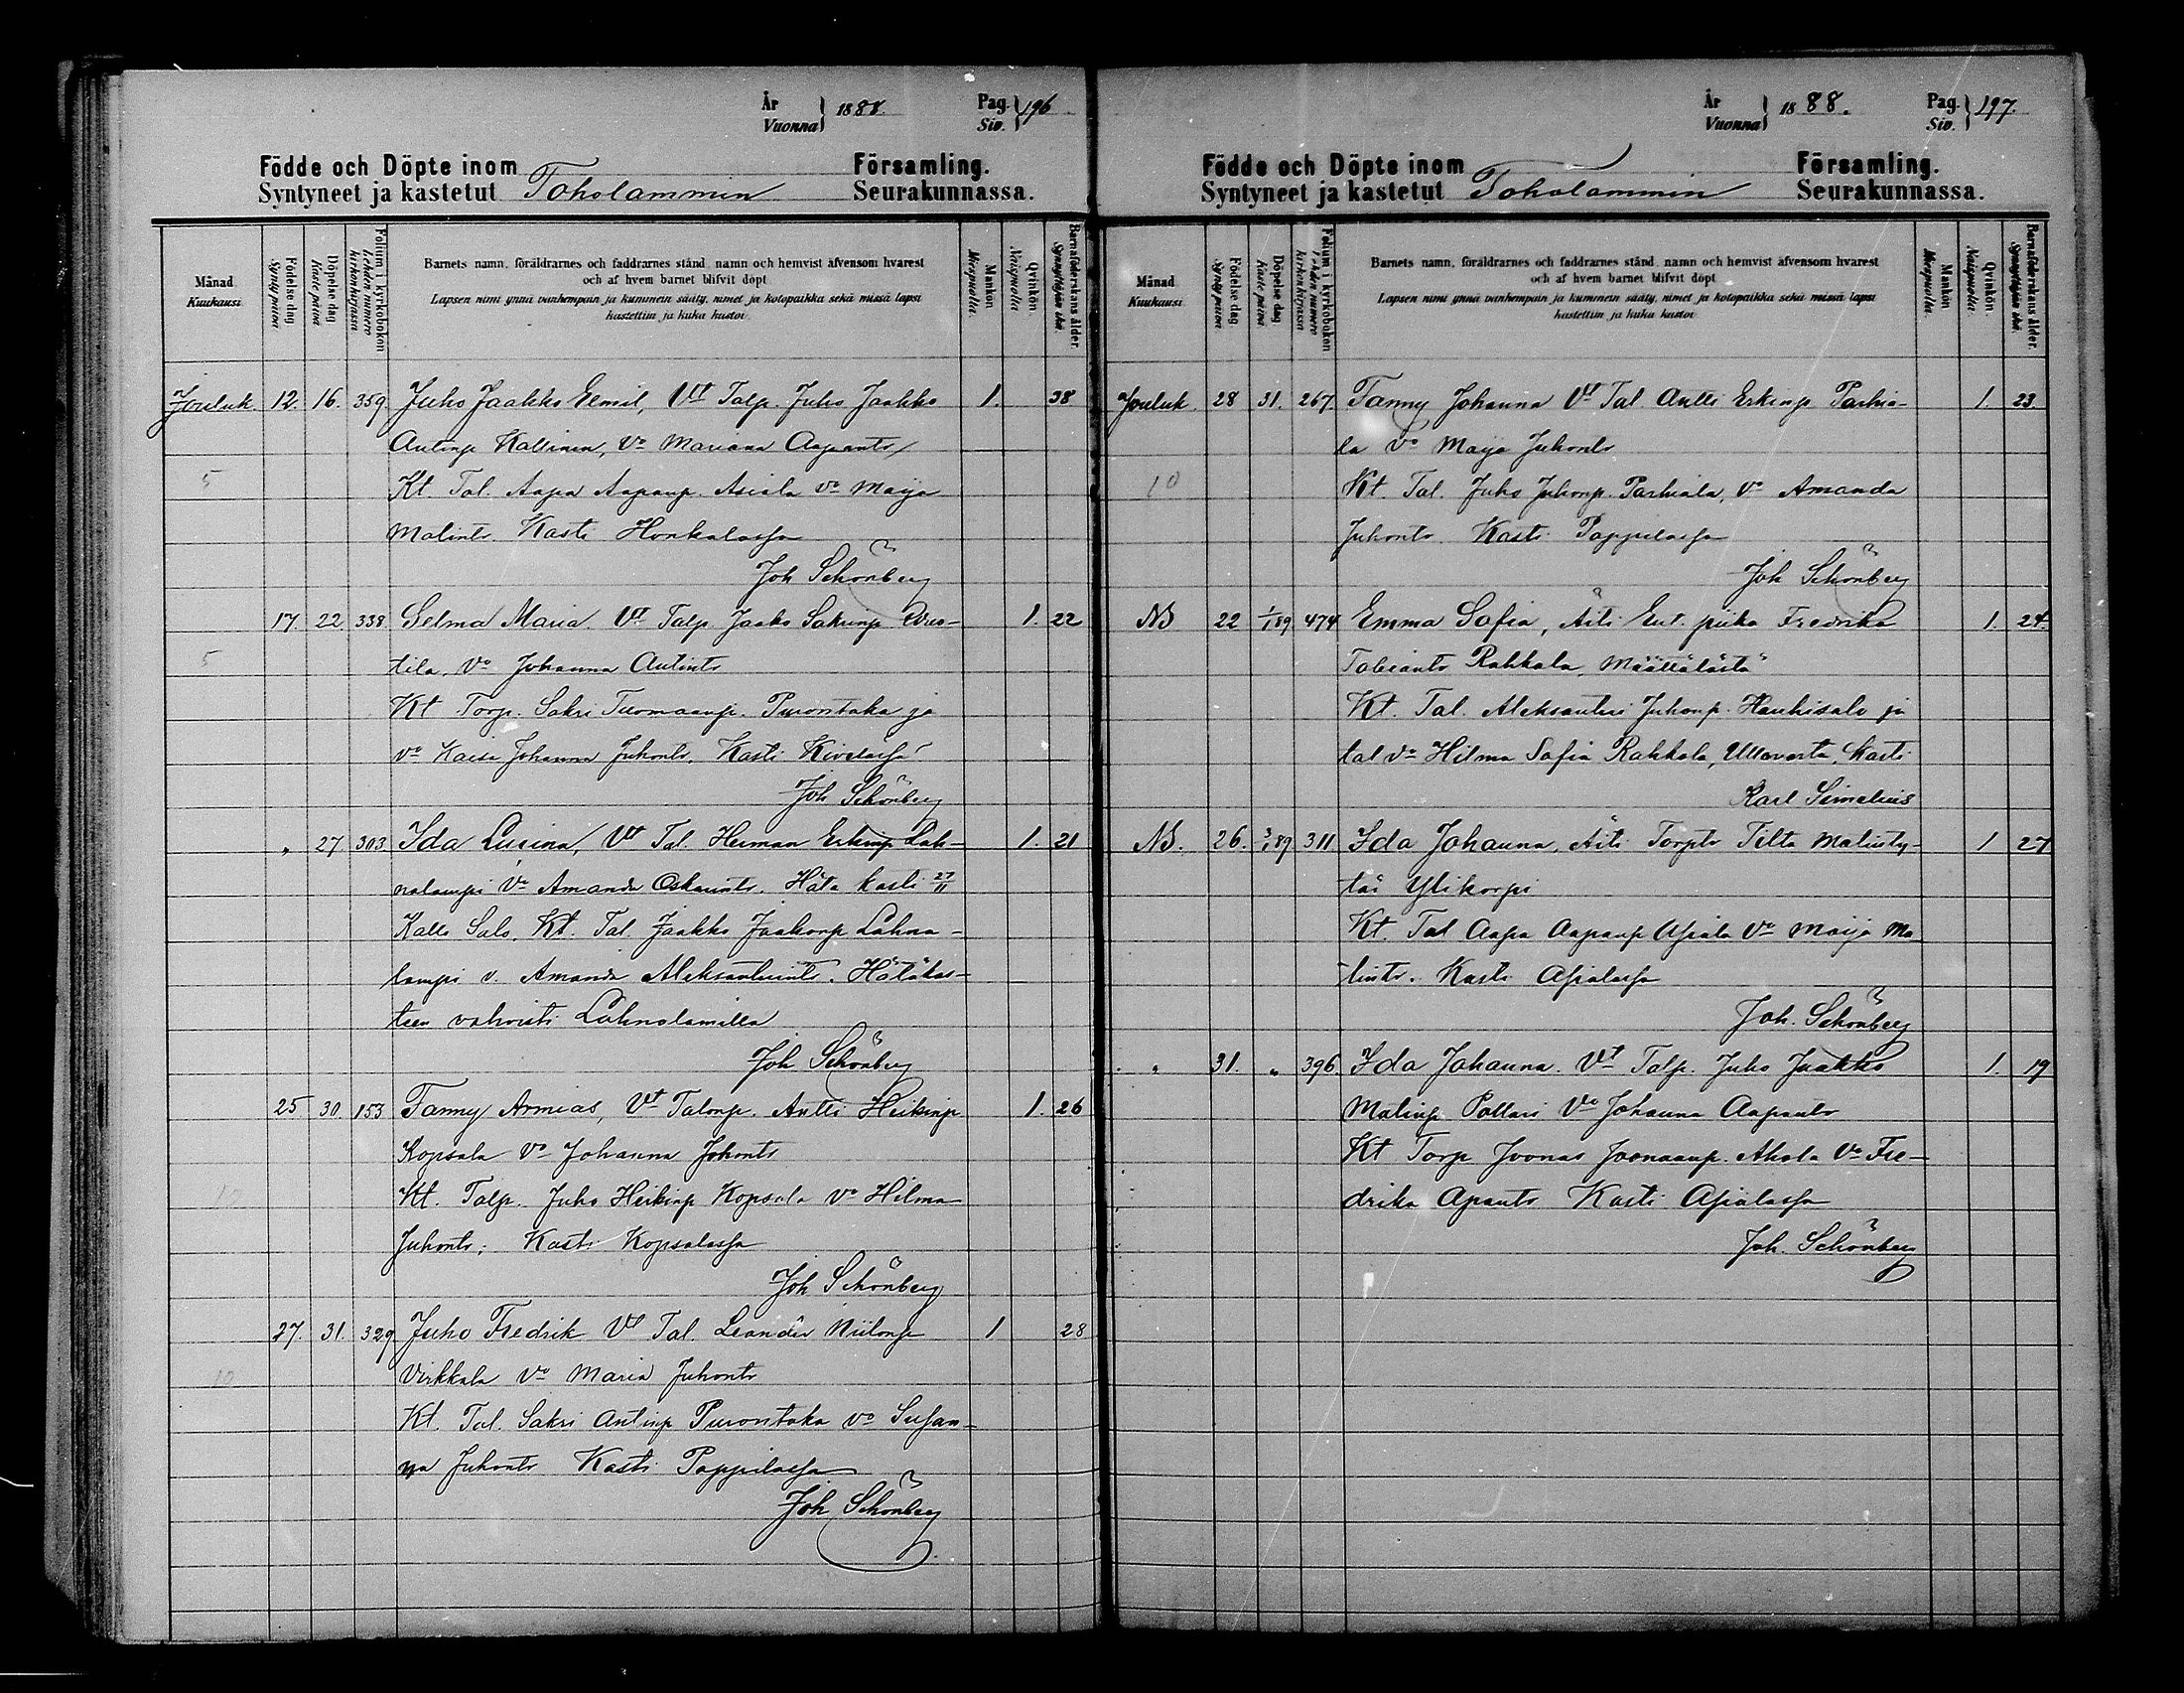 År
Vuonna } 1888. Pag. Siv. } 196
Födde och Döpte inom Församling.
Syntyneet ja kastetut Toholammin Seurakunnassa.
Månad Kuukausi
Födelse dag Synty päivä
Döpelse dag Kaste päivä
Folium i kyrkoboken Lehden numero kirkonkirjassa
Barnets namn, föräldrarnes och faddrarnes stånd, namn och hemvist äfvensom hvarest
och af hvem barnet blifvit döpt
Lapsen nimi ynnä vanhempain ja kummein sääty, nimet ja kotopaikka sekä missä lapsi
kastettiin ja kuka kastoi
Mankön Miespuolia.
Qvinkön. Naispuolia.
Barnaföderskans ålder. Synnyttäjän ikä.
Jouluk. 12. 16. 359. Juho Jaakko Eemil, Vt Talp. Juho Jaakko 1. 38
Antinp Kallinen, Vo Mariana Aapants
5 Kt Tal. Aapa Aapanp. Asiala vo Maija
Matints. Kasti Honkalassa
Joh Schönberg
17. 22 338. Selma Maria. Vt Talp. Jaako Sakrinp 1. 22
5 tila, Vo Johanna Antints
Kt Torp. Sakri Tuomaanp. Purontaka ja
vo Kaisa Johanna Juhonts. Kasti Kivelässä
Joh Schönberg
„ 27 303. Ida Lusina, Vt Tal. Herman Erkinp Lah- 1. 21
nalampi Vo Amanda Oskarints. Hätä kasti 27/11
Kalle Salo. Kt. Tal. Jaakko Jaakonp Lahna-
lampi v. Amanda Aleksanterints. Hätäkas-
teen vahvisti Lahnolamilla
Joh Schönberg
25 30. 153 Fanny Armias, Vt Talonp. Antti Heikinp 1. 26
Kopsala Vo Johanna Johonts
Kt. Talp. Juho Heikinp Kopsala Vo Hilma
Juhonts; Kasti Kopsalassa
Joh Schönberg
27. 31. 329 Juho Fredrik Vt Tal. Leander Niilonp 1 28
10 Virkkala Vo Maria Juhonts
Kt. Tal. Sakri Antinp Purontaka vo Susan-
na Juhonts Kasti Pappilassa
Joh Schönberg
År
Vuonna } 1888. Pag. Siv. } 197.
Födde och Döpte inom Församling.
Syntyneet ja kastetut Toholammin Seurakunnassa.
Månad Kuukausi
Födelse dag Synty päivä
Döpelse dag Kaste päivä
Folium i kyrkoboken Lehden numero kirkonkirjassa
Barnets namn, föräldrarnes och faddrarnes stånd, namn och hemvist äfvensom hvarest
och af hvem barnet blifvit döpt
Lapsen nimi ynnä vanhempain ja kummein sääty, nimet ja kotopaikka sekä missä lapsi
kastettiin ja kuka kastoi
Mankön Miespuolia.
Qvinkön. Naispuolia.
Barnaföderskans ålder. Synnyttäjän ikä.
Jouluk. 28 31. 267. Fanny Johanna Vt Tal. Antti Erkinp Parhia- 1. 23.
la Vo Maija Juhonts
10 Kt Tal. Juho Juhonp. Parhiala, Vo Amanda
Juhonts Kasti Pappilassa
Joh Schönberg
NB 22 1/1 89. 474 Emma Sofia, Äiti Ent. piika Fredrika 1. 24.
Tobiants Rahkala, Määttälästä
Kt. Tal. Aleksanteri Juhonp. Hankisalo ja
tal vo Hilma Sofia Rahkala, Ullavasta, Kasti
Karl Simelius
NB. 26. 3/1 89 311 Ida Johanna, Äiti Torpts Tilta Matinty- 1 27
tär Ylikorpi
Kt. Tal Aapa Aapanp Asiala Vo Maija Ma
tints. Kasti Asialassa
Joh. Schönberg
„ 31. „ 396. Ida Johanna. Vt Talp. Juho Jaakko 1. 19
Matinp Pollari Vo Johanna Aapants
Kt Torp Joonas Joonaanp. Ahola Vo Fre-
drika Apants Kasti Asialassa
Joh. Schönberg